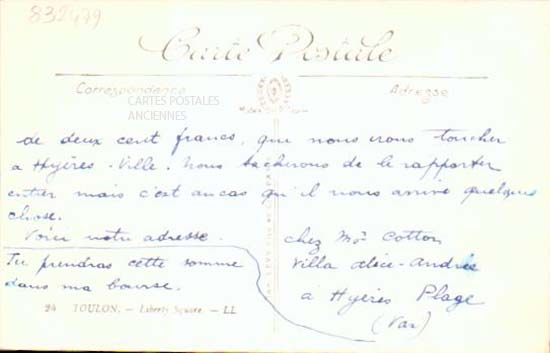 832479
Carte Postale
Correspondance
Adresse
CARTES POSTALES
ANCIENNES
de deux cent francs, que nous irons toucher
à Hyères-Ville. Nous tacherons de le rapporter
entier mais c'est au cas qu'il nous arrive quelque
chose.
Voici notre adresse.
chez Mr Cotton
Villa Alice-Andrée
à Hyères Plage
(Var)
Tu prendras cette somme
dans ma bourse.
24 TOULON. — Liberty Square — LL